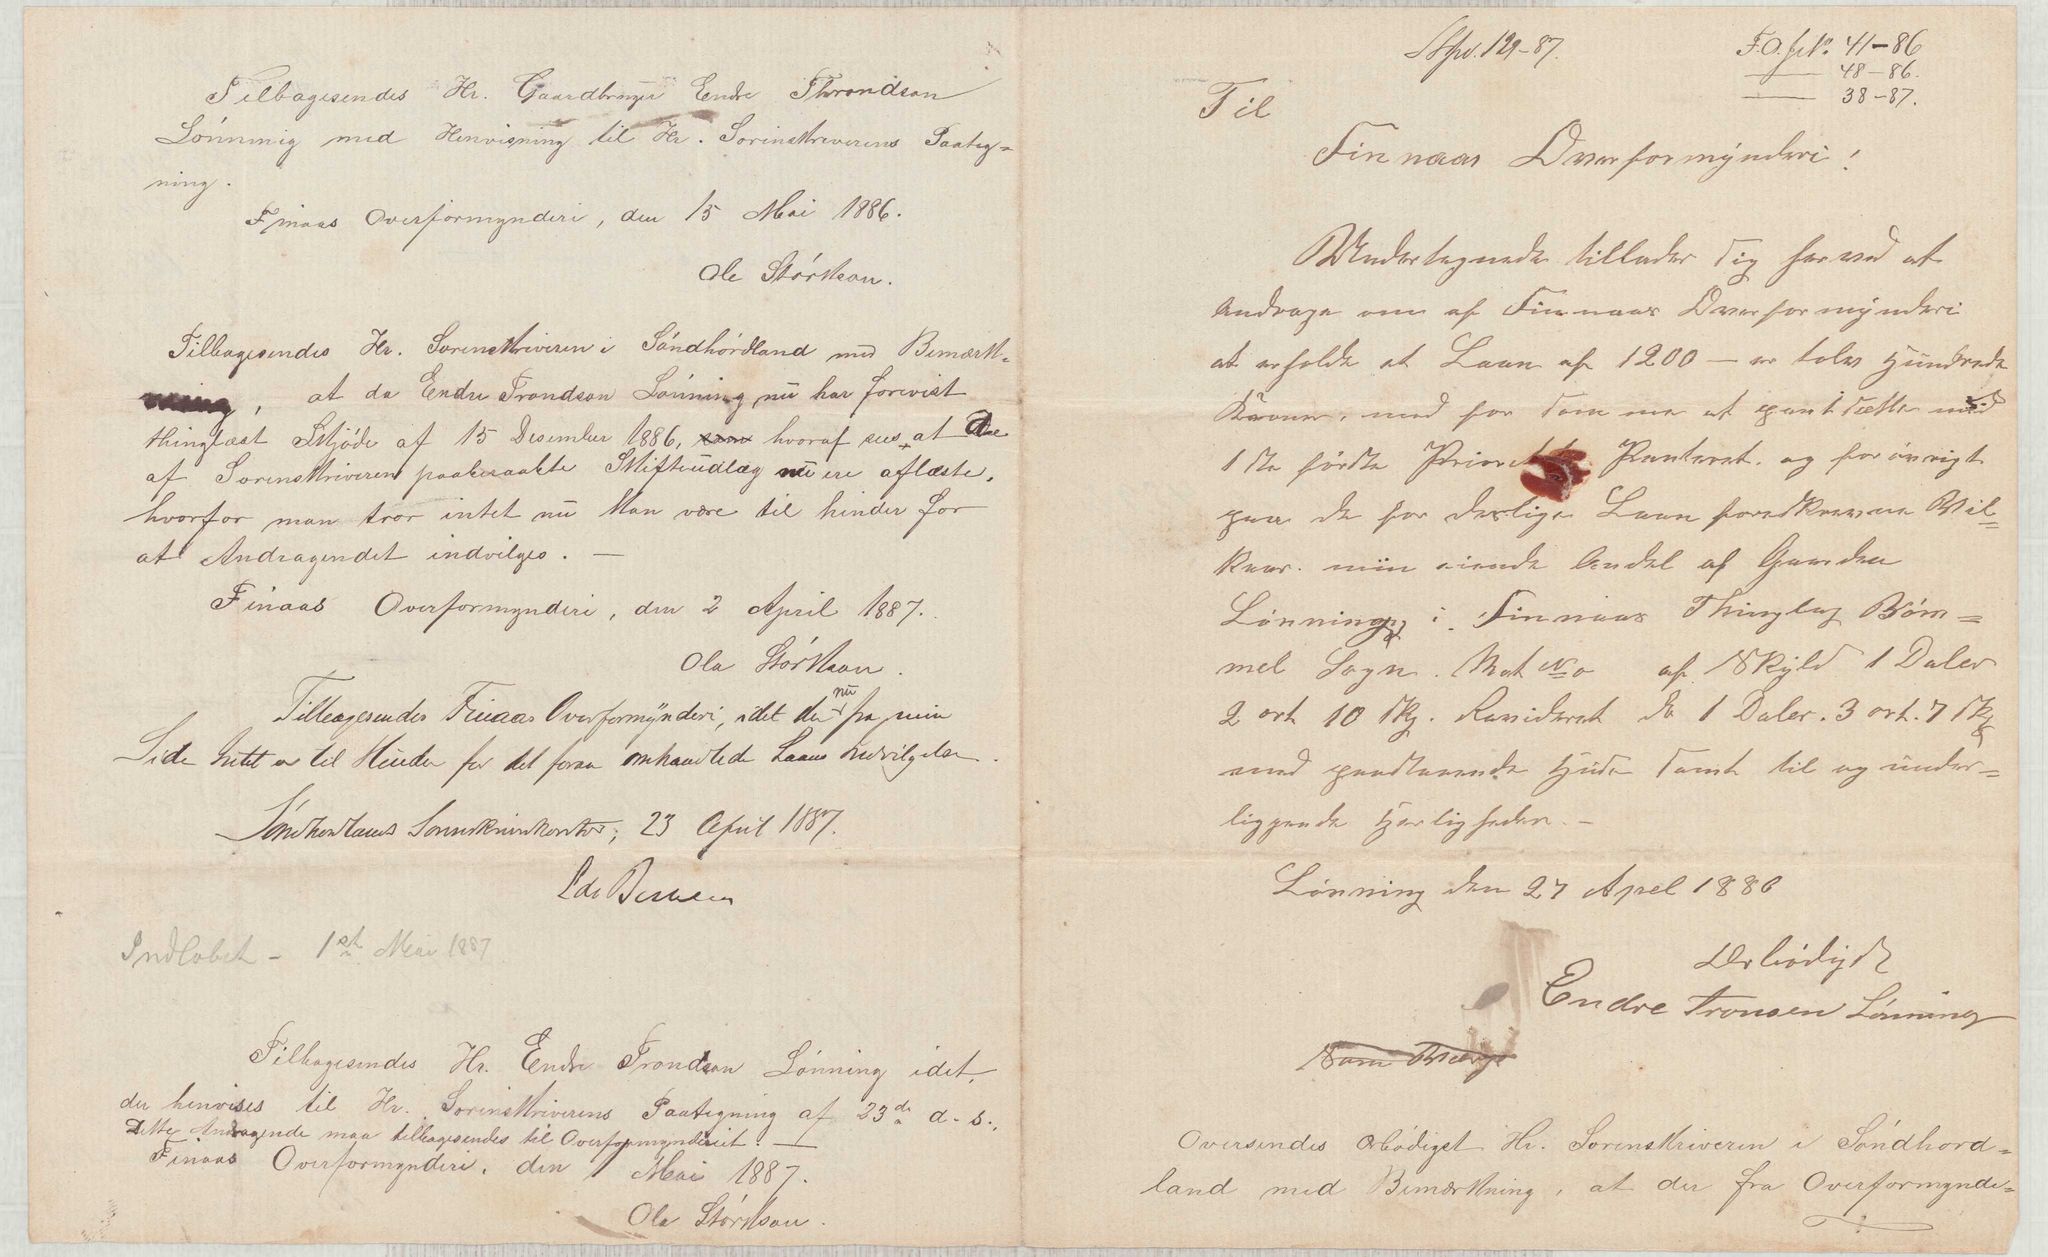 Tilbagesendes Hr. Gaardbruger Endre Throndson
Lönning med Henvisning til Hr. Sorenskriverens Paateg=
ning.
Finaas Overformynderi, den 15 Mai 1886.
Ole Störkson.
Tilbagesendes Hr. Sorenskriveren i Söndhördland med Bemærk-
ning, at da Endre Trondson Lönning nu har forevist
thinglæst Skjöde af 15 Desember 1886, som hvoraf sees at de
af Sorenskriveren paaberaabte Skifteudlæg nu ere aflæste,
hvorfor man tror intet nu kan være til hinder for
at Andragendet indvilges. —
Finaas Overformynderi, den 2 April 1887.
Ola Störkson.
Tilbagesendes Finaas Overformynderi, idet der nu fra min
Side Intet er til Hinder for det foran omhandlede Laans Indvilgelse.
Söndhordlands Sorenskriverkontor, 23 April 1887.
Indlobet - 1st Mai 1887
Tilbagesendes Hr. Endre Trondson Lönning idet,
der henvises til Hr. Sorenskriverens Paategning af 23de d. s.,
Dette Andragende maa tilbagesendes til Overformynderiet. —
Finaas Overformynderi, den 1 Mai 1887.
Ola Störkson.
129-87.
F.O. 41-86
— 48-86.
— 38-87.
Til
Finnaas Overformynderi!
Undertegnede tillader sig herved at
andrage om af Finnaas Overformynderi
at erholde et Laan af 1200 — er tolv Hundrede
Kroner, med for som me at pantsætte med
1ste förste Prioritets Panteret. og forövrigt
paa de for deslige Laan foreskrevne Vil=
kaar. min eiende Andel af Gaarden
Lönning i Finnaas Thinglag Böm=
mel Sogn. Mat No af Skyld 1 Daler
2 ort 10 skg. Revideret da 1 Daler. 3 ort. 7 skg
med paastaaende Huse samt til og under=
liggende Herligheder. -
Lönning den 27 Apel 1886
Ærbödigst
Endre Tronsen Lönning
Som Værge
Oversendes ærbödigst Hr. Sorenskriveren i Söndhord=
land med Bemærkning, at der fra Overformynde=